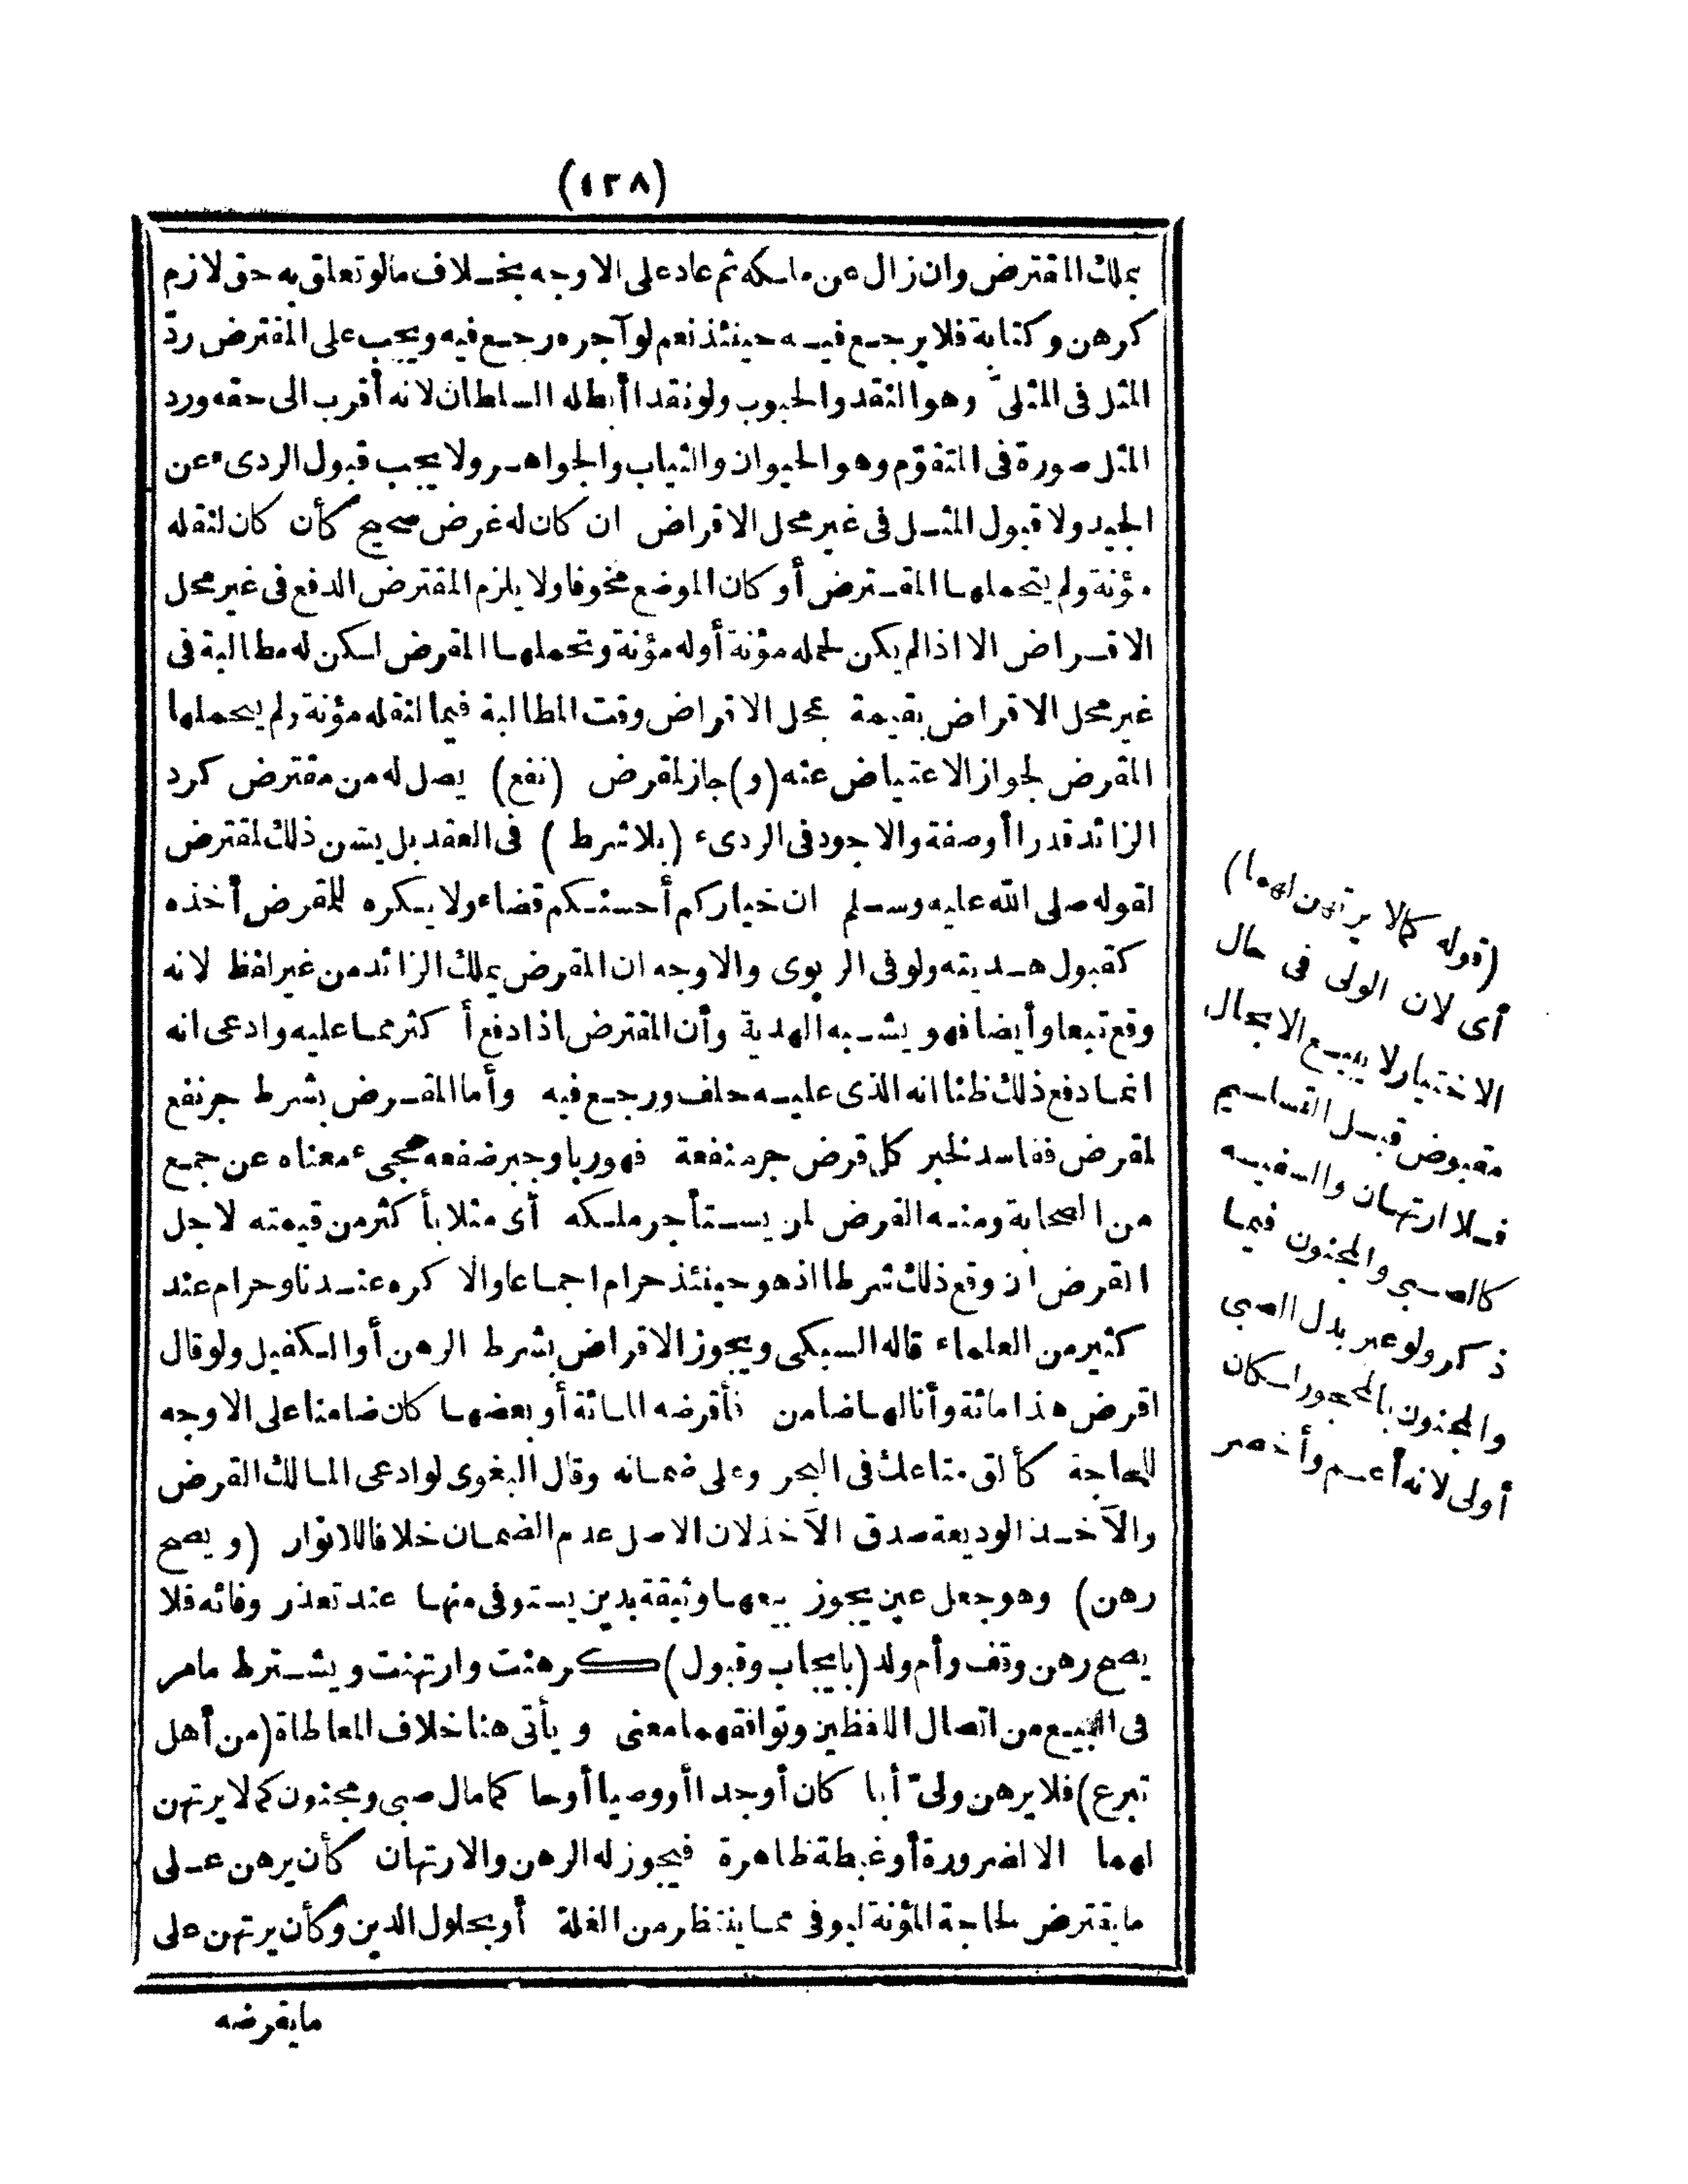 (١٢٨)
بملك المقترض وان زال عن ملكه ثم عاد على الاوجه بخلاف مالو تعلق به حق لازم
كرهن وكتابة فلا يرجع فيه حينئذ نعم لو آجره رجع فيه ويجب على المقترض ردّ
المثل فى المثلىّ وهو النقد والحبوب ولو نقدا أبطله السلطان لانه أقرب الى حقه ورد
المثل صورة فى المتقوّم وهو الحيوان والثياب والجواهر ولا يجب قبول الردىء عن
الجيد ولا قبول المثل فى غير محل الاقراض ان كان له غرض صحيح كأن كان لنقله
مؤنة ولم يتحملها المقترض أو كان الموضع مخوفا ولا يلزم المقترض الدفع فى غير محل
الاقراض الا اذا لم يكن لحمله مؤنة أوله مؤنة وتحملها المقرض لكن له مطالبة فى
غير محل الاقراض بقيمة بمحل الاقراض وقت المطالبة فيما لنقله مؤنة ولم يتحملها
المقرض لجواز الاعتياض عنه (و) جاز لمقرض (نفع) يصل له من مقترض كرد
الزائد قدرا أو صفة والاجود فى الردىء (بلا شرط) فى العقد بل يسن ذلك لمقترض
لقوله صلى الله عليه وسلم ان خياركم أحسنكم قضاء ولا يكره للمقرض أخذه
كقبول هديته ولو فى الربوى والاوجه ان المقرض يملك الزائد من غير لفظ لانه
وقع تبعا وأيضا فهو يشبه الهدية وأن المقترض اذا دفع أكثر مما عليه وادعى انه
انما دفع ذلك ظنا انه الذى عليه حلف ورجع فيه وأما القرض بشرط جر نفع
لمقرض ففاسد لخبر كل قرض جر منفعة فهو ربا وجبر ضعفه مجىء معناه عن جمع
من الصحابة ومنه القرض لمن يستأجر ملكه أى مثلا بأكثر من قيمته لاجل
القرض ان وقع ذلك شرطا اذ هو حينئذ حرام اجماعا والا كره عندنا وحرام عند
كثير من العلماء قاله السبكى ويجوز الاقراض بشرط الرهن أو الكفيل ولو قال
اقرض هذا مائة وأنا لها ضامن فأقرضه المائة أو بعضها كان ضامنا على الاوجه
للحاجة كألق متاعك فى البحر وعلى ضمانه وقال البغوى لو ادعى المالك القرض
والآخذ الوديعة صدق الآخذ لان الاصل عدم الضمان خلافا للانوار (ويصح
رهن) وهو جعل عين يجوز بيعها وثيقة بدين يستوفى منها عند تعذر وفائه فلا
يصح رهن وقف وأم ولد (بايجاب وقبول) كرهنت وارتهنت ويشترط ما مر
فى البيع من اتصال اللفظين وتوافقهما معنى ويأتى هنا خلاف المعاطاة (من أهل
تبرع) فلا يرهن ولىّ أبا كان أوجدا أو وصيا أو حاكما مال صبى ومجنون كما لا يرتهن
لهما الا لضرورة أو غبطة ظاهرة فيجوز له الرهن والارتهان كأن يرهن على
ما يقترض لحاجة المؤنة ليوفى مما ينتظر من الغلة أو بحلول الدين وكأن يرتهن على
ما يقرضه
(قوله كما لا يرتهن لهما)
أى لان الولى فى حال
الاختيار لا يبيع الا بحال
مقبوض قبل التسليم
فلا ارتهان والسفيه
كالصبى والمجنون فيما
ذكر ولو عبر بدل الصبى
والمجنون بالمحجور لكان
أولى لانه أعم وأخصر